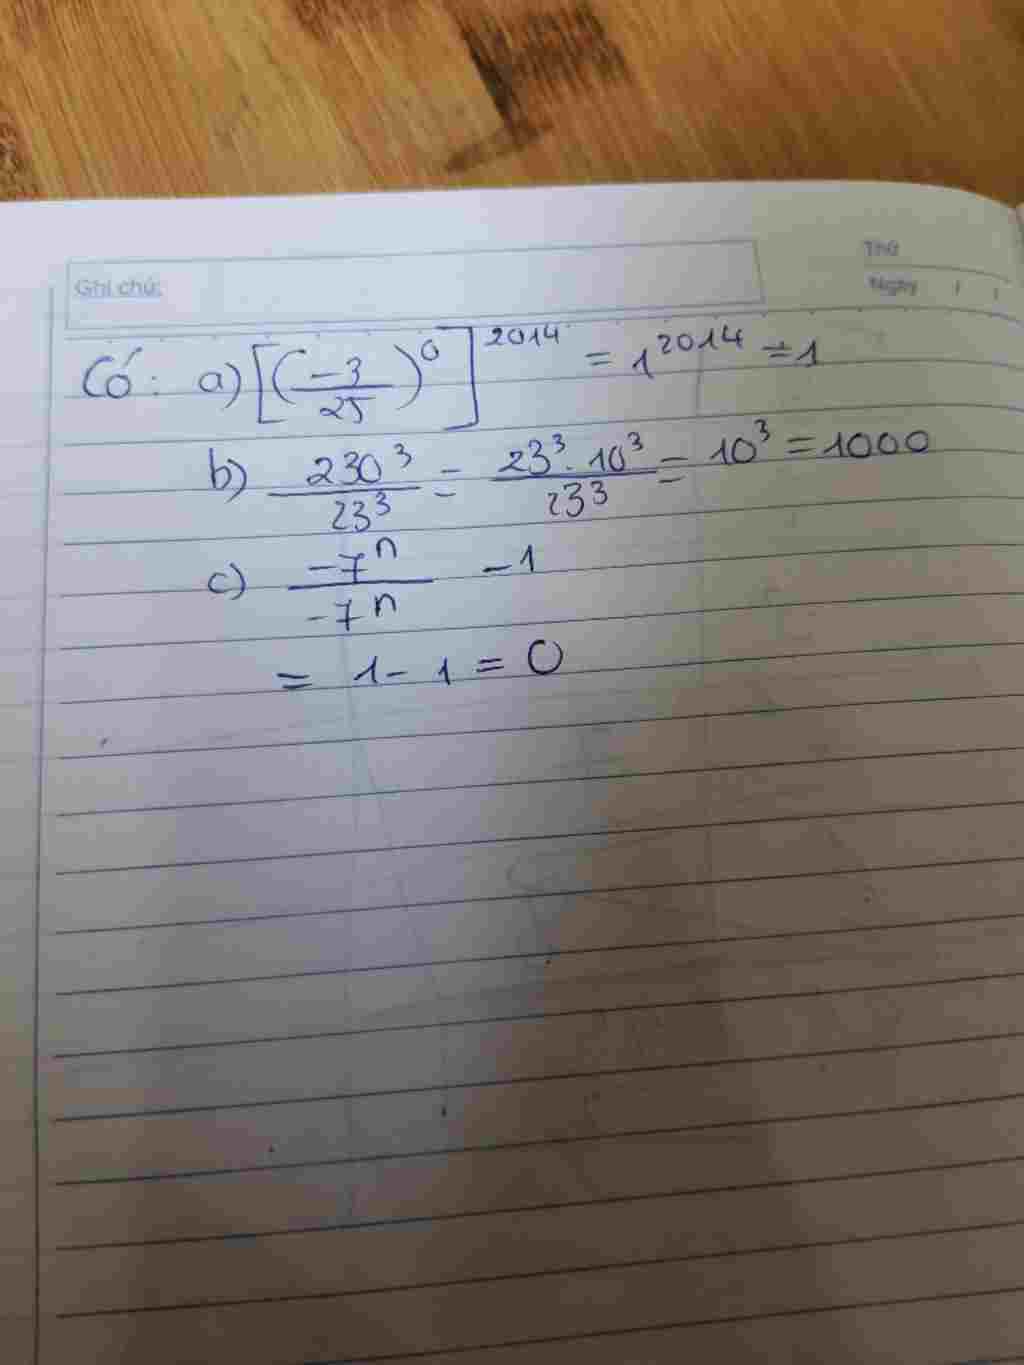 Ghi chú:
Thứ
Ngày / /
Có: a) [(-3/25)^0]^2014 = 1^2014 = 1
b) 230^3/23^3 = 23^3 . 10^3/23^3 = 10^3 = 1000
c) -7^n/-7^n - 1
= 1 - 1 = 0